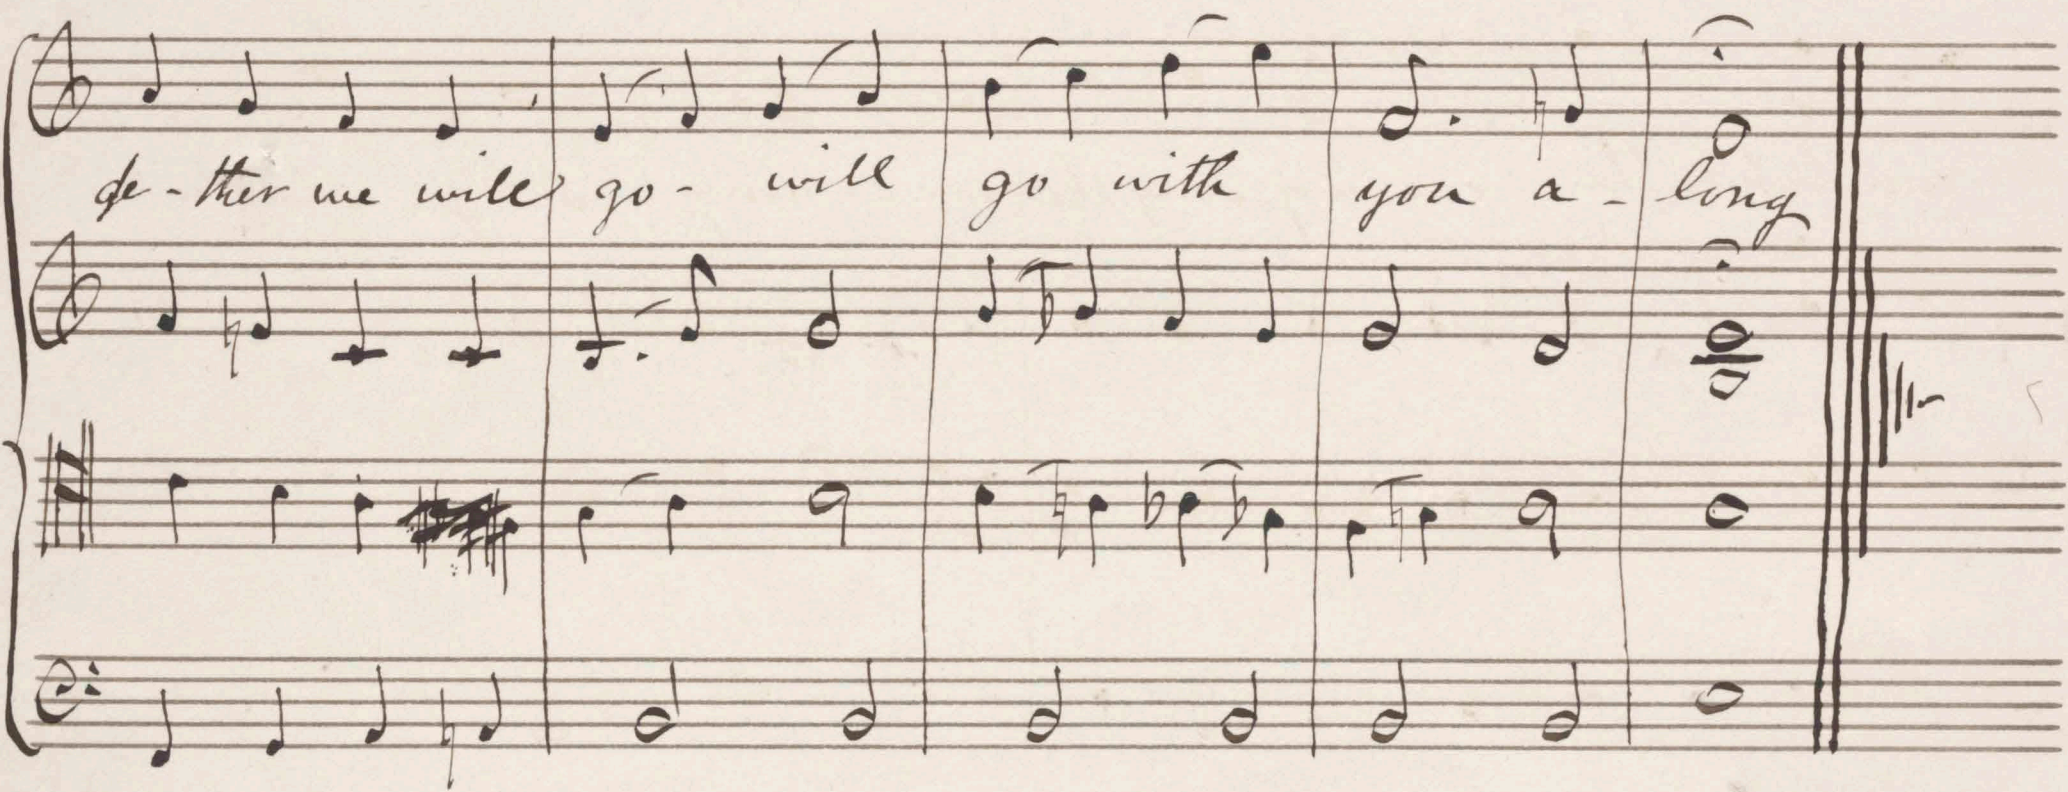 ge-ther we will go- will go with you a-long